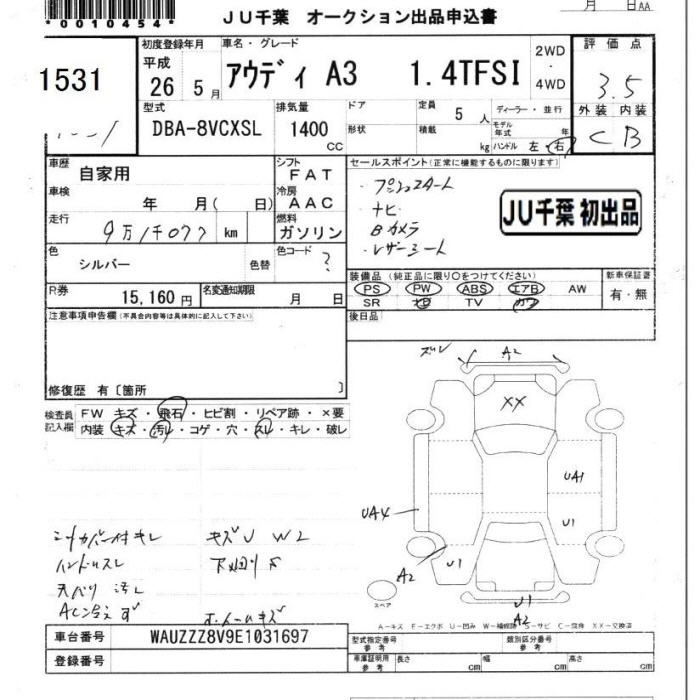 月 日 AA
*0010454*
JU千葉 オークション出品申込書
1531
初度登録年月
平成
26 5月
車名・グレード
アウディ A3 1.4TFSI
2WD
・
4WD
評価点
3.5
外装 内装
C B
型式
DBA-8VCXSL
排気量
1400
CC
ドア
形状
定員
5人
積載
kg
ディーラー・並行
モデル年式 年
ハンドル 左・右
車歴
自家用
シフト
FAT
車検
年 月(日)
冷房
AAC
走行
9万1千077 km
燃料
ガソリン
色
シルバー
色替
色コード
?
R券
15,160円
名変通知期限
月 日
セールスポイント(正常に機能するものに限ります)
・プッシュスタート
・ナビ
・Bカメラ
・レザーシート
JU千葉 初出品
装備品(純正品に限り○をつけてください)
PS PW ABS エアB AW
SR ナビ TV カワ
新車保証書
有・無
後日品
注意事項申告欄(不具合内容等は具体的に記入して下さい)
修復歴 有〔箇所 〕
検査員
記入欄
FW キズ・飛石・ヒビ割・リペア跡・×要
内装 キズ・汚レ・コゲ・穴・スレ・キレ・破レ
ズレ
A2
XX
UA1
U1
UA4
A2
U1
U1
A2
スペア
キズU W2
ハンドルスレ
天バリ 汚レ
A-キズ F-エクボ U-凹み W-補修跡 S-サビ C-腐食 XX-交換済
車台番号
WAUZZZ8V9E1031697
登録番号
型式指定番号
参考
類別区分番号
参考
車庫証明用
参考
長さ cm
幅 cm
高さ cm